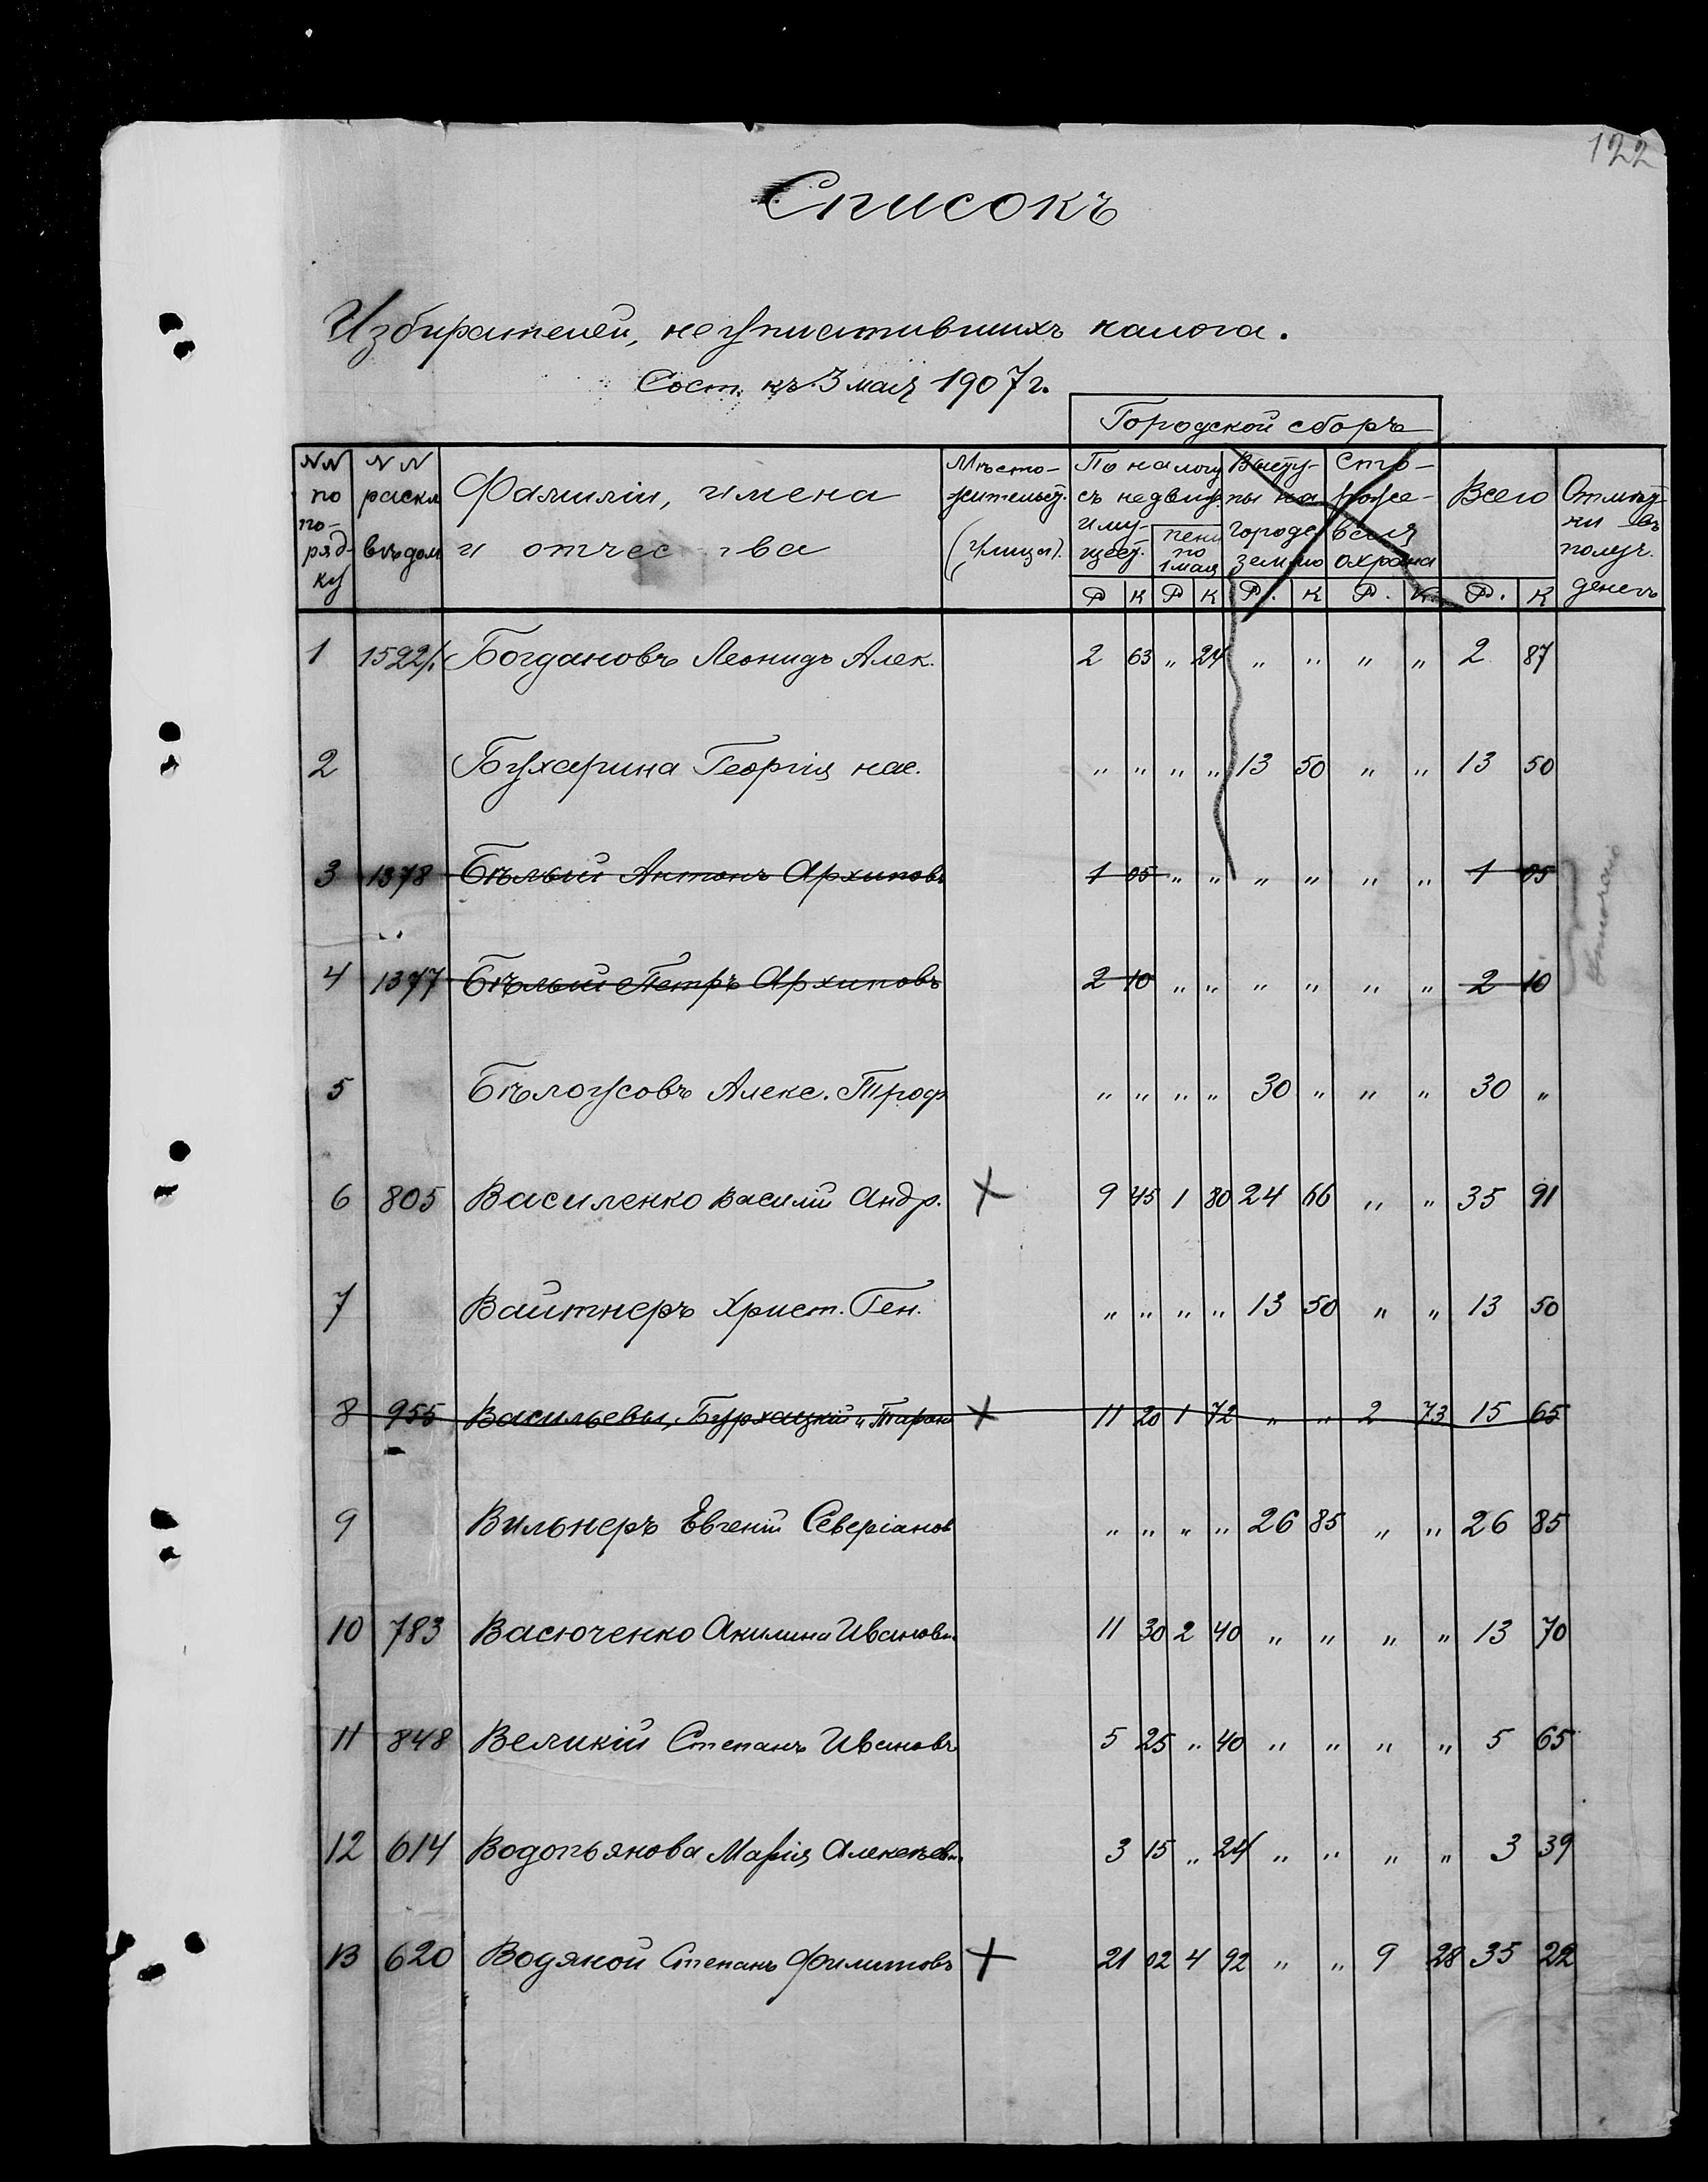 122
Списокъ
Избирателей, неуплатившихъ налога.
Сост. къ 3 мая 1907 г.
Городской сборъ
NN по поряд-ку NN раскл вѣдом Фамиліи, имена и отчества Мѣсто-жительст. (улица). По налогу съ недвиж. имущест. пени по 1 мая на городс землю Сторожевая охрана Всего Отмѣтки въ получ. денегъ
Р К Р К Р. К Р. К. Р. К
1 1522/1 Богдановъ Леонидъ Алек. 2 63 „ 24 „ „ „ „ 2 87
2 Бухарина Георгія нас. „ „ „ „ 13 50 „ „ 13 50
3 1378 Бѣлый Антонъ Архиповъ 1 05 „ „ „ „ „ „ 1 05
4 1377 Бѣлый Петръ Архиповъ 2 10 „ „ „ „ „ „ 2 10
5 Бѣлоусовъ Алекс. Троф „ „ „ „ 30 „ „ „ 30 „
6 805 Василенко Василій Андр. X 9 45 1 80 24 66 „ „ 35 91
7 Вайтнеръ Христ. Ген. „ „ „ „ 13 50 „ „ 13 50
8 955 Васильевы, Бурхацкій и Таран X 11 20 1 72 „ „ 2 73 15 65
9 Вильнеръ Евгеній Северіанов „ „ „ „ 26 85 „ „ 26 85
10 783 Васюченко Акилина Ивановн. 11 30 2 40 „ „ „ „ 13 70
11 848 Великій Степанъ Ивановъ 5 25 „ 40 „ „ „ „ 5 65
12 614 Водопьянова Марія Алексѣевн. 3 15 „ 24 „ „ „ „ 3 39
13 620 Водяной Степанъ Филиповъ X 21 02 4 92 „ „ 9 28 35 22